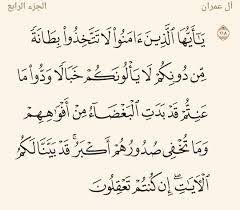 آل عمران الجزء الرابع
يَـٰٓأَيُّهَا ٱلَّذِينَ ءَامَنُوا۟ لَا تَتَّخِذُوا۟ بِطَانَةً ١١٨
مِّن دُونِكُمْ لَا يَأْلُونَكُمْ خَبَالًا وَدُّوا۟ مَا
عَنِتُّمْ قَدْ بَدَتِ ٱلْبَغْضَآءُ مِنْ أَفْوَٰهِهِمْ
وَمَا تُخْفِى صُدُورُهُمْ أَكْبَرُ ۚ قَدْ بَيَّنَّا لَكُمُ
ٱلْـَٔايَـٰتِ ۖ إِن كُنتُمْ تَعْقِلُونَ